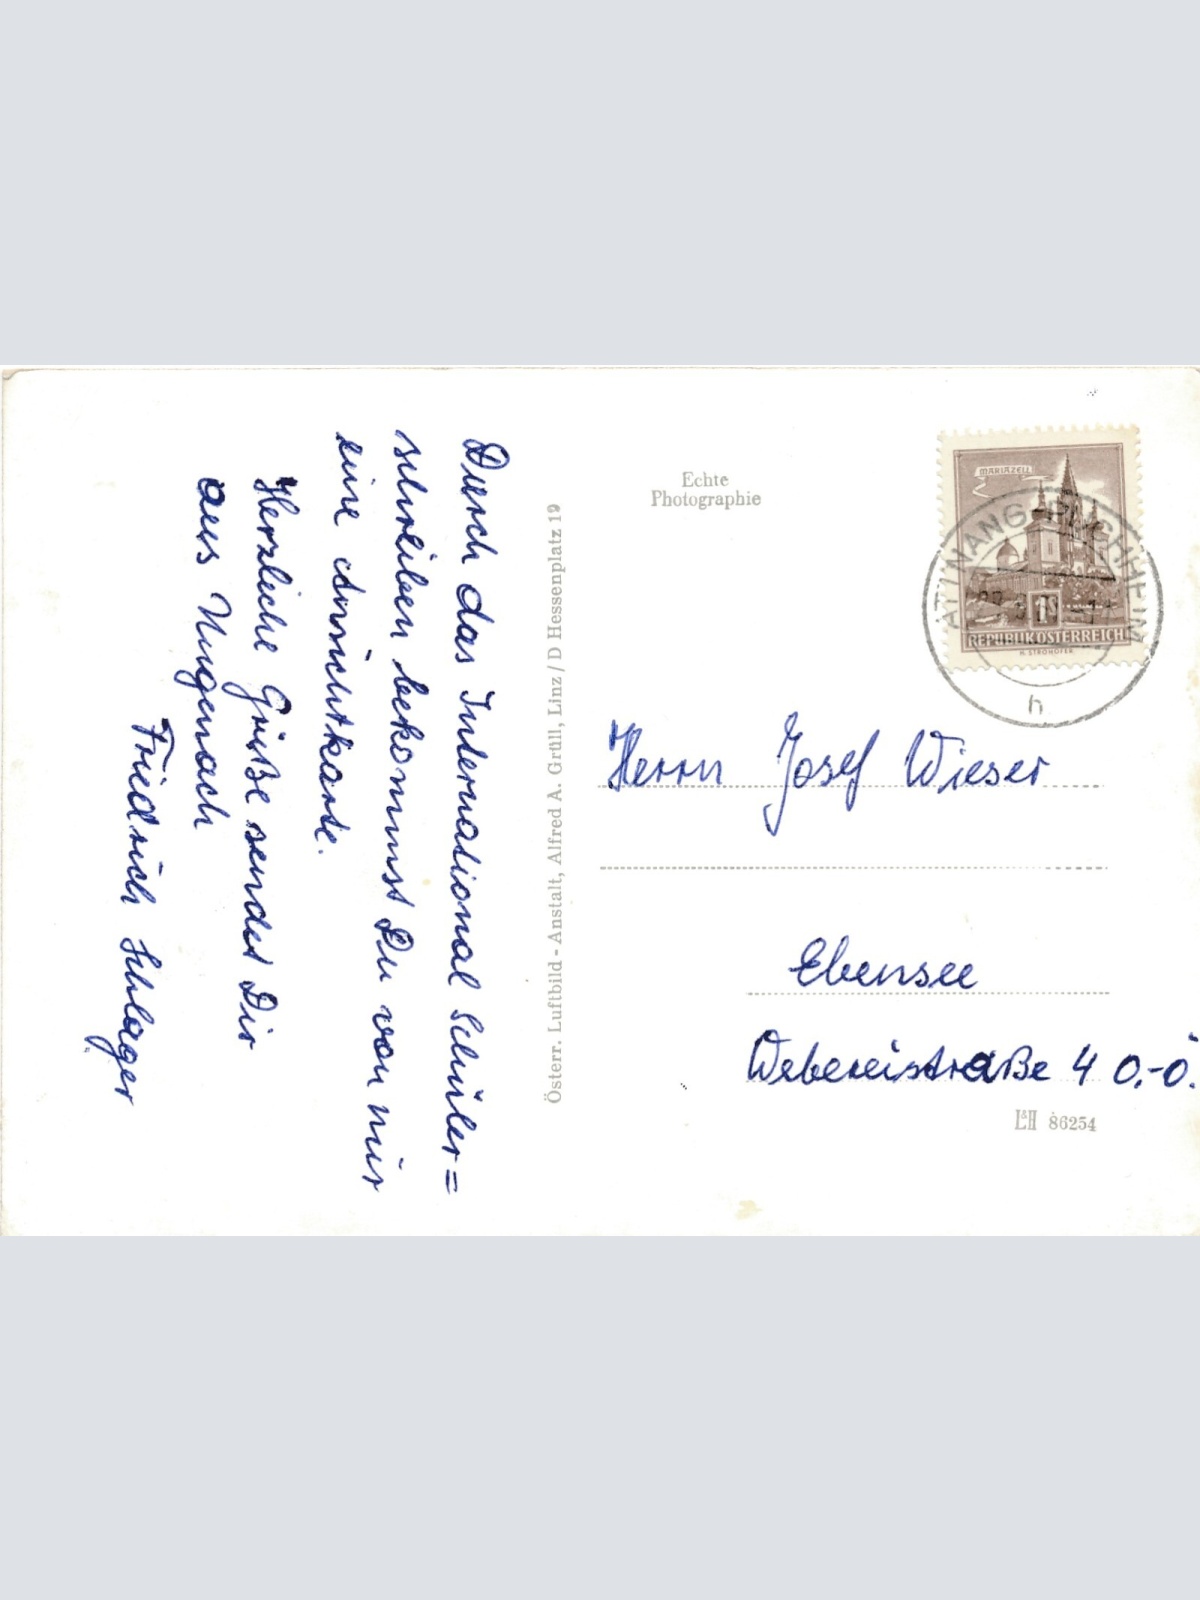 Durch das International Schüler=
schreiben bekommst Du von mir
eine Ansichtkarte.
Herzliche Grüße sendet Dir
aus Ungenach
Friedrich Schlager
Österr. Luftbild - Anstalt, Alfred A. Grüll, Linz/D Hessenplatz 19
Echte
Photographie
MARIAZELL
1S
REPUBLIK ÖSTERREICH
H. STROHOFER
ATTNANG-PUCHHEIM
h
Herrn Josef Wieser
Ebensee
Webereistraße 4 O.-Ö.
L&H 86254